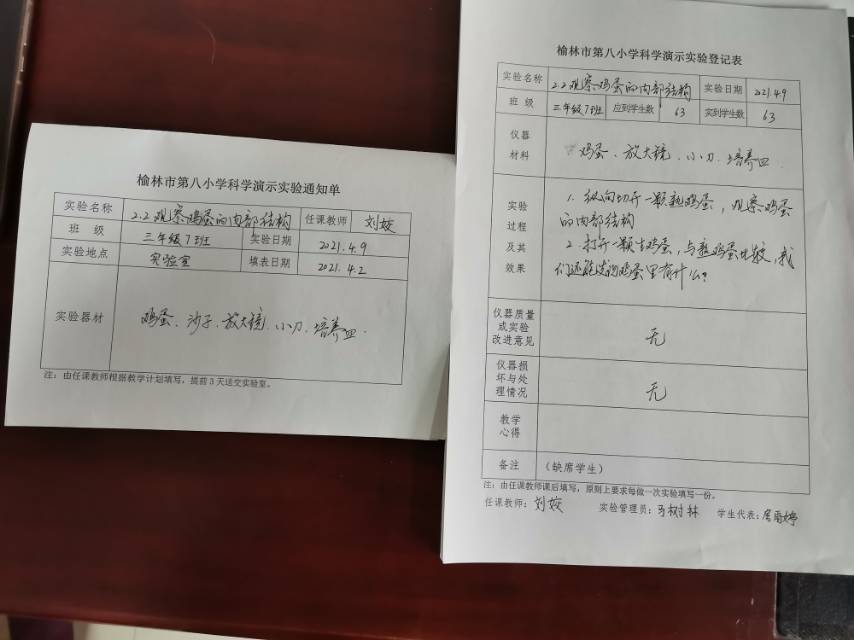 榆林市第八小学科学演示实验通知单
实验名称 2.2观察鸡蛋的内部结构 任课教师 刘姣
班 级 三年级7班 实验日期 2021.4.9
实验地点 实验室 填表日期 2021.4.2
实验器材 鸡蛋、沙子、放大镜、小刀、培养皿.
注:由任课教师根据教学计划填写,提前3天送交实验室。
榆林市第八小学科学演示实验登记表
实验名称 2.2观察鸡蛋的内部结构 实验日期 2021.4.9
班 级 三年级7班 应到学生数 63 实到学生数 63
仪器
材料
鸡蛋、放大镜、小刀、培养皿.
实验
过程
及其
效果
1. 纵向切开一颗熟鸡蛋,观察鸡蛋
的内部结构
2. 打开一颗生鸡蛋,与熟鸡蛋比较,我
们还能发现鸡蛋里有什么?
仪器质量
或实验
改进意见
无
仪器损
坏与处
理情况
无
教学
心得
备注 (缺席学生)
注:由任课教师课后填写,原则上要求每做一次实验填写一份。
任课教师:刘姣 实验管理员: 学生代表: